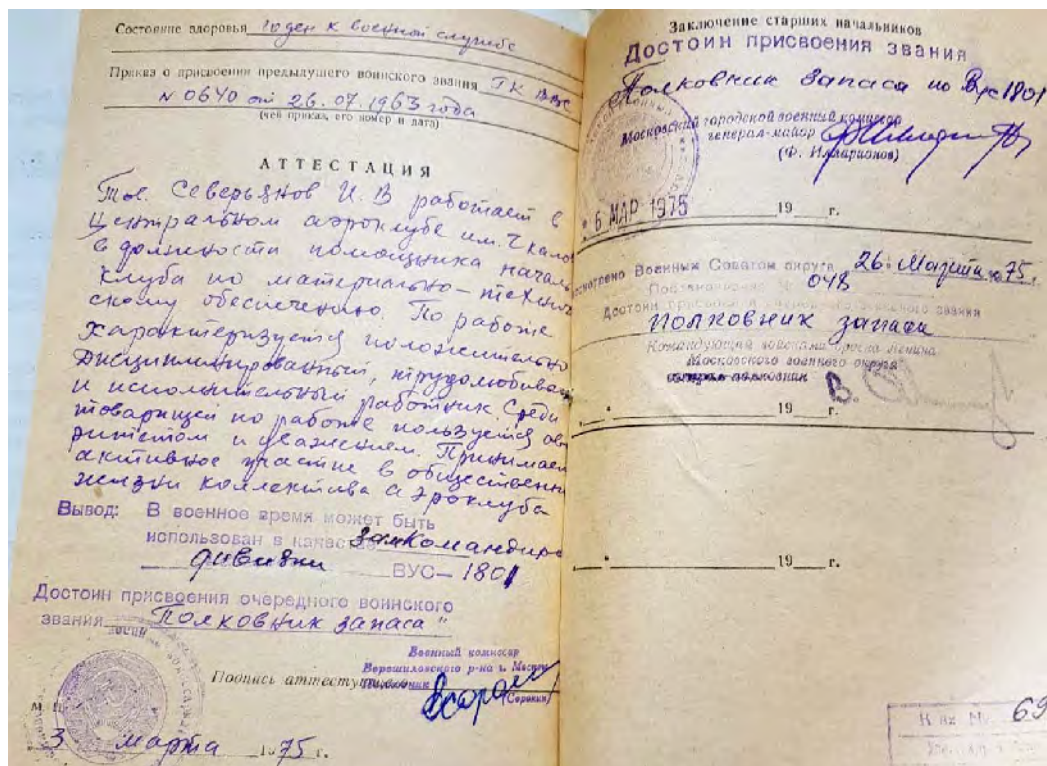 Состояние здоровья Годен к военной службе
Приказ о присвоении предыдущего воинского звания ГК ВВС
N 0640 от 26.07.1963 года
(чей приказ, его номер и дата)
АТТЕСТАЦИЯ
Тов. Северьянов И. В работает в
Центральном аэроклубе им. Чкало
в должности помощника началь
клуба по материально-технич
скому обеспечению. По работе
характеризуется положительно
Дисциплинированный, трудолюбивый
и исполнительный работник. Среди
товарищей по работе пользуется ав
ритетом и уважением. Принимает
активное участие в общественн
жизни коллектива аэроклуба
Вывод: В военное время может быть
использован в качестве замКомандира
дивизии ВУС— 1801
Достоин присвоения очередного воинского
звания „Полковник запаса"
Военный комиссар
Ворошиловского р-на г. Москвы
Подпись аттестующего Полковник
(Сорокин)
М. П.
3 марта 1975 г.
Заключение старших начальников
Достоин присвоения звания
Полковник запаса по Вус 1801
Московский городской военный комиссар
генерал-майор
(Ф. Илларионов)
6 МАР 1975 19 г.
смотрено Военным Советом округа 26 Марта 75 г.
Постановление № 048
Достоин присвоения очередного воинского звания
полковник запаса
Командующий войсками ордена Ленина
Московского военного округа
генерал-полковник
" 19 г.
" 19 г.
К вх. № 69